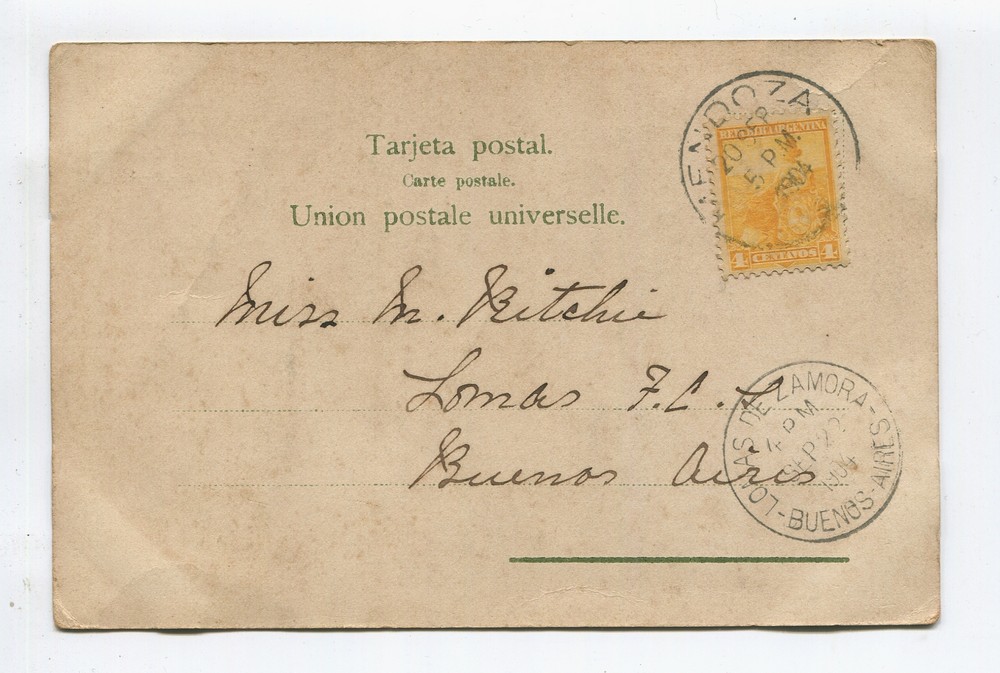 Tarjeta postal.
Carte postale.
Union postale universelle.
MENDOZA
20 SEP
5 P.M.
1904
REPUBLICA ARGENTINA
4 CENTAVOS 4
Miss M. Ritchie
Lomas F.C.S
Buenos Aires
LOMAS DE ZAMORA - BUENOS-AIRES
PM
SEP 22
1904